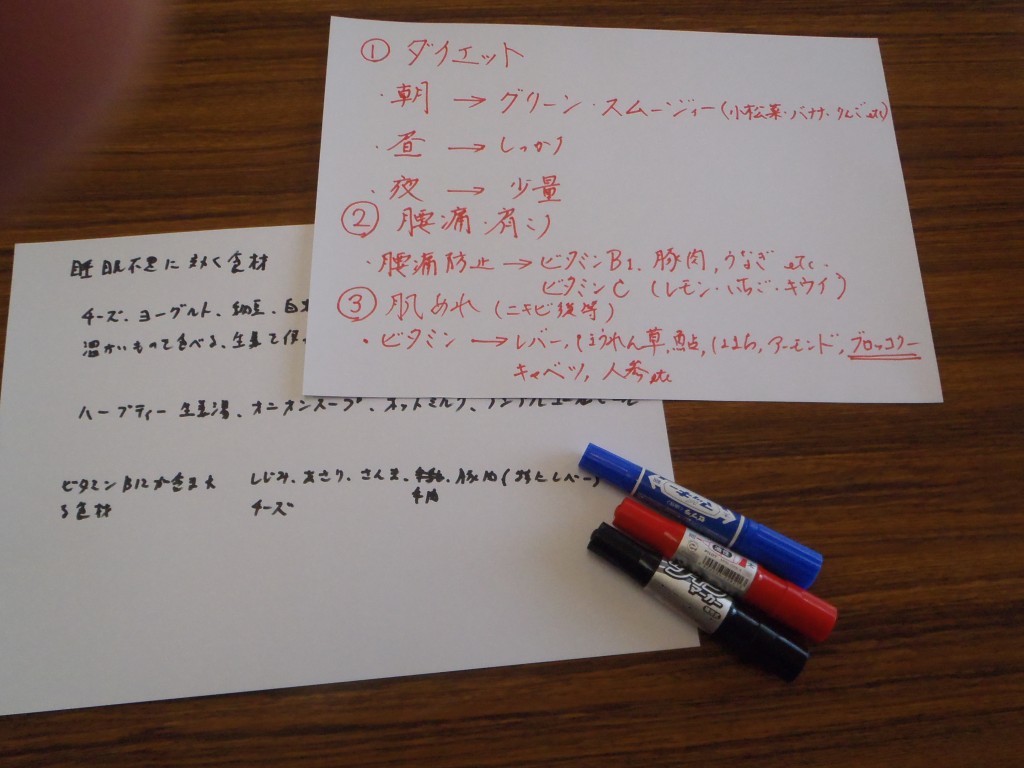 ① ダイエット
・朝 → グリーン・スムージィー(小松菜・バナナ・りんごetc)
・昼 → しっかり
・夜 → 少量
② 腰痛・肩こり
・腰痛防止 → ビタミンB1、豚肉、うなぎ etc.
ビタミンC (レモン・いちご・キウイ)
③ 肌あれ (ニキビ 等)
・ビタミン → レバー、ほうれん草、 アーモンド、ブロッコリー
キャベツ、人参 etc
睡眠不足に効く食材
チーズ、ヨーグルト、納豆、
温かいもので食べる、生姜で
ハーブティー 生姜湯、オニオンスープ、ホットミルク、
ビタミンB12が含まれ しじみ、あさり、さんま、 豚肉( レバー)
る食材 チーズ 牛肉
マーカー